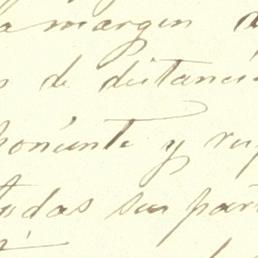 a margen
s de distanci
poniente y
todas su par